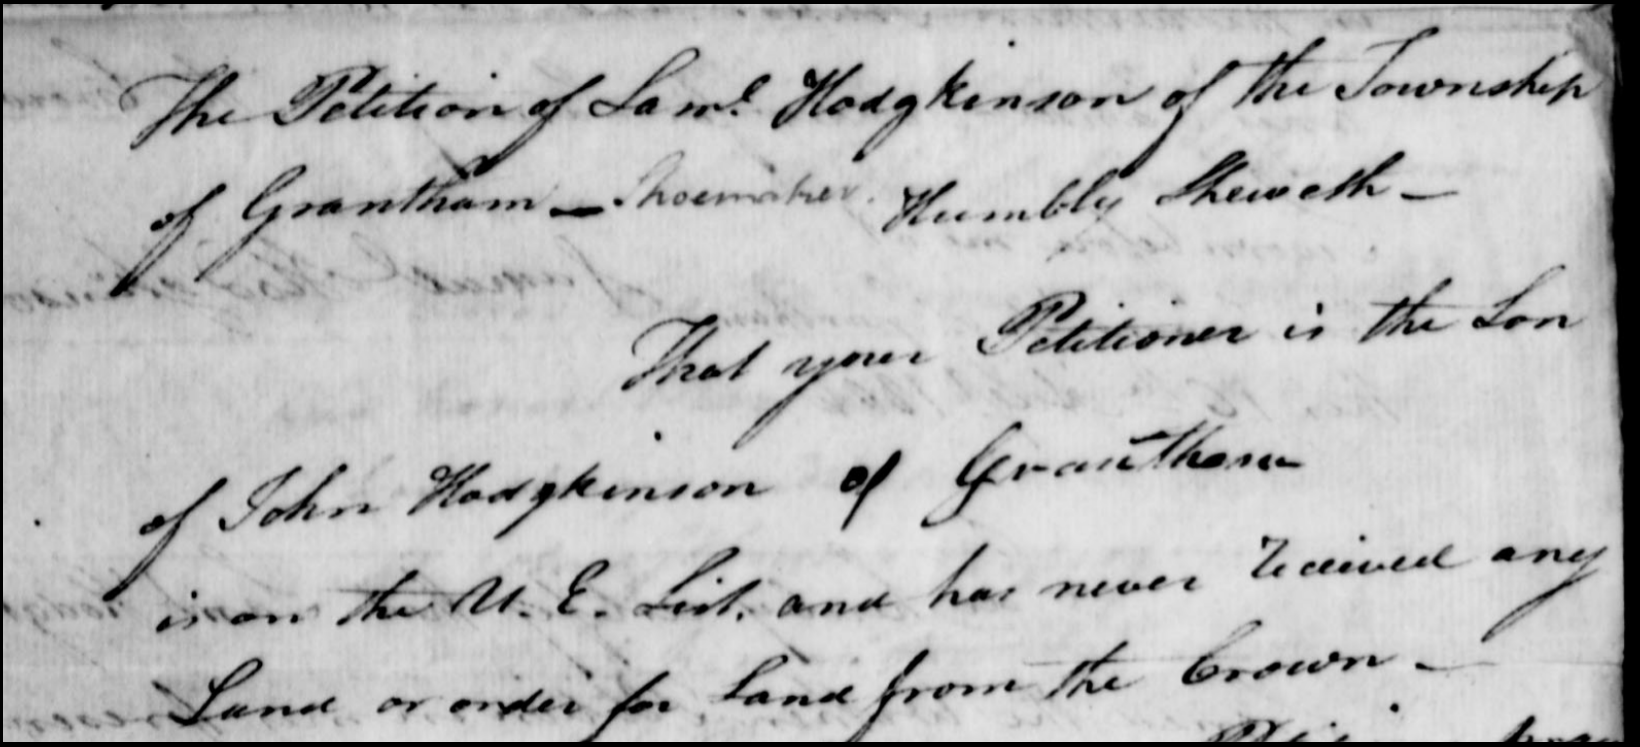 The Petition of Saml. Hodgkinson of the Township
of Grantham — Shoemaker. Humbly Sheweth —
That your Petitioner is the Son
of John Hodgkinson of Grantham
is on the U. E. List, and has never received any
Land or order for Land from the Crown —